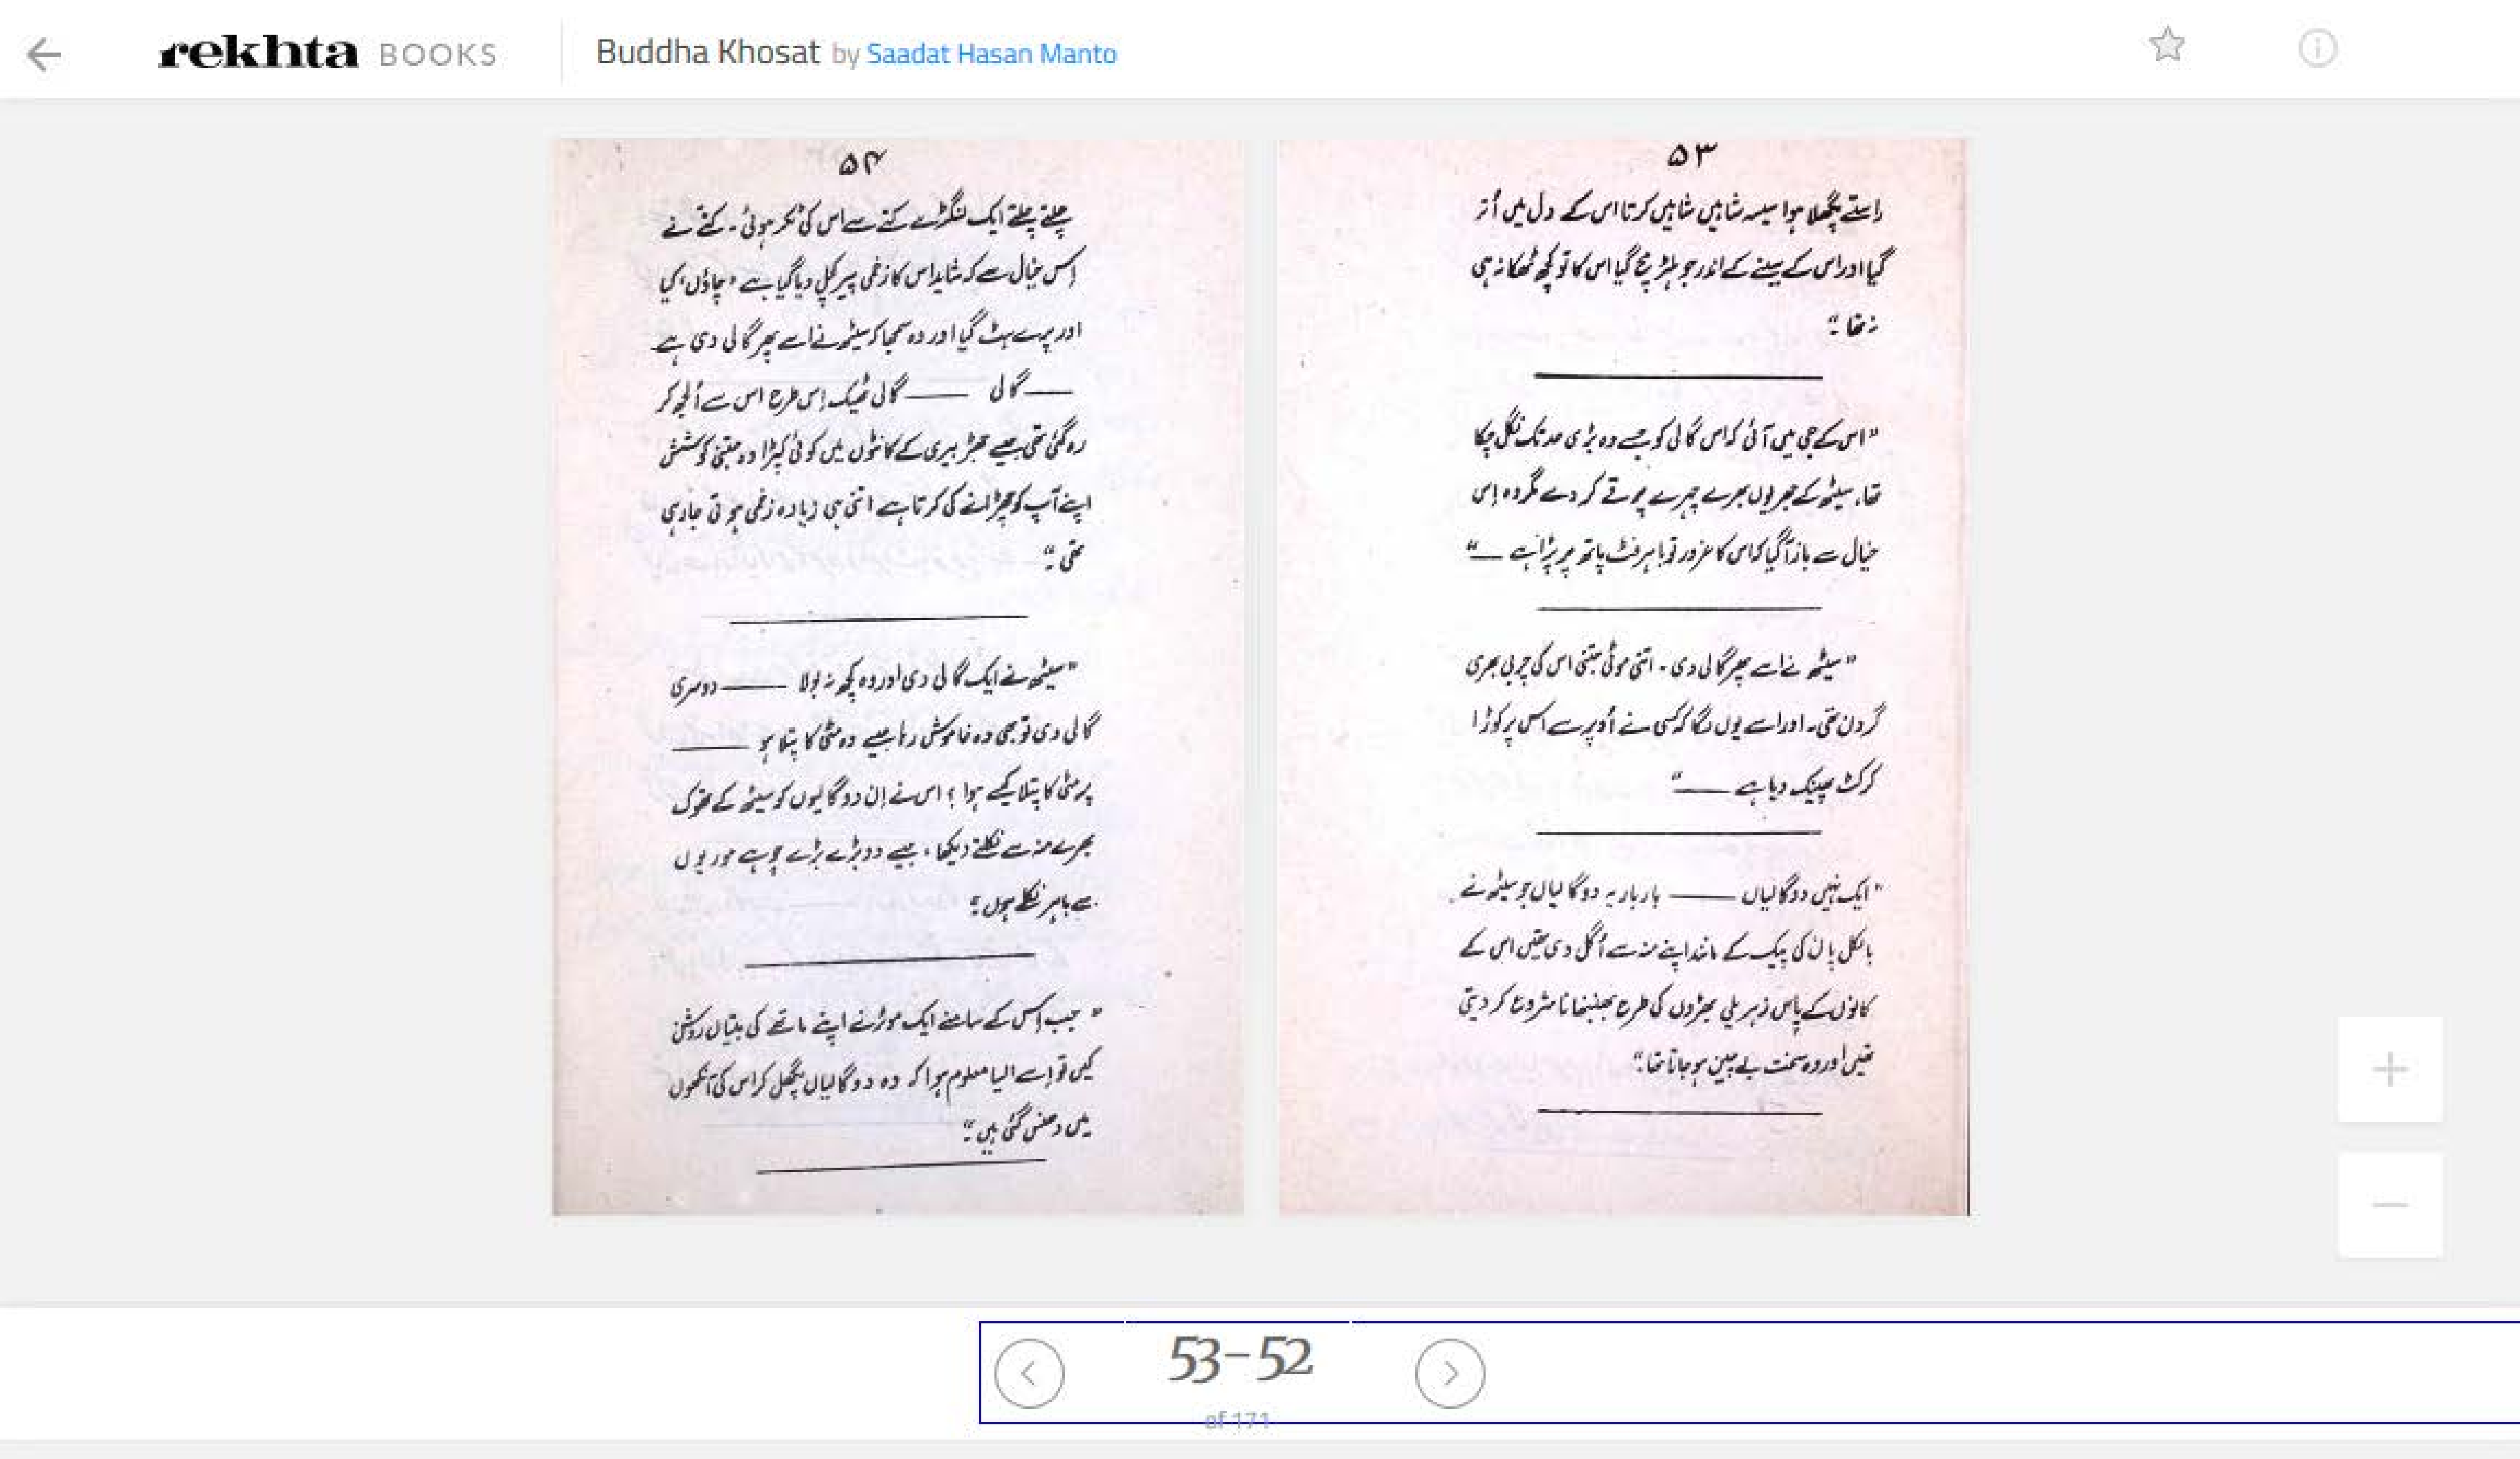 rekhta BOOKS
Buddha Khosat by Saadat Hasan Manto
۵۳
راستے پگھلا ہوا سیسہ شائیں شائیں کرتا اس کے دل میں اُتر
گیا اور اس کے سینے کے اندر جو ہلڑ مچ گیا اس کا تو کچھ ٹھکانہ ہی
نہ تھا۔“
”اس کے جی میں آئی کہ اس گالی کو جسے وہ بڑی حد تک نگل چکا
تھا، سیٹھ کے جھریوں بھرے چہرے پر قے کر دے مگر وہ اس
خیال سے باز آ گیا کہ اس کا غرور تو باہر فٹ پاتھ پر پڑا ہے ——“
”سیٹھ نے اسے پھر گالی دی۔ اتنی موٹی جتنی اس کی چربی بھری
گردن تھی۔ اور اسے یوں لگا کہ کسی نے اُوپر سے اس پر کوڑا
کرکٹ پھینک دیا ہے ——“
”ایک نہیں دو گالیاں —— بار بار یہ دو گالیاں جو سیٹھ نے
بالکل پان کی پیک کے مانند اپنے منہ سے اُگل دی تھیں اس کے
کانوں کے پاس زہریلی بھڑوں کی طرح بھنبھنانا شروع کر دیتی
تھیں اور وہ سخت بے چین ہو جاتا تھا۔“
۵۴
چلتے چلتے ایک لنگڑے کتے سے اس کی ٹکر ہوئی۔ کتے نے
اِس خیال سے کہ شاید اس کا زخمی پیر کچل دیا گیا ہے ’چاؤں‘ کیا
اور پرے ہٹ گیا اور وہ سمجھا کہ سیٹھ نے اسے پھر گالی دی ہے
—— گالی —— گالی ٹھیک اِسی طرح اس سے اُلجھ کر
رہ گئی تھی جیسے جھڑ بیری کے کانٹوں میں کوئی کپڑا وہ جتنی کوشش
اپنے آپ کو چھڑانے کی کرتا ہے اتنی ہی زیادہ زخمی ہوتی جا رہی
تھی۔“
”سیٹھ نے ایک گالی دی اور وہ کچھ نہ بولا —— دوسری
گالی دی تو بھی وہ خاموش رہا جیسے وہ مٹی کا پتلا ہو ——
پر مٹی کا پتلا کیسے ہوا؟ اس نے اِن دو گالیوں کو سیٹھ کے تھوک
بھرے منہ سے نکلتے دیکھا، جیسے دو بڑے بڑے چوہے موریوں
سے باہر نکلے ہوں۔“
”جب اِس کے سامنے ایک موٹر نے اپنے ماتھے کی بتیاں روشن
کیں تو اِسے ایسا معلوم ہوا کہ وہ دو گالیاں پگھل کر اس کی آنکھوں
میں دھنس گئی ہیں۔“
53-52
of 171